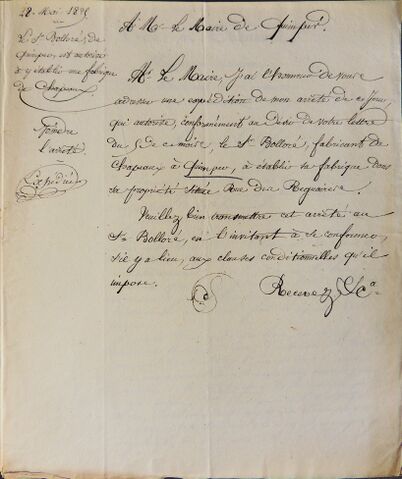 28 Mai 18
Le Sr Bolloré, de
Quimper, est autorisé
à y établir une fabrique
de Chapeaux
l'arrêté
Expédiée
A Mr le Maire de Quimper.
Mr le Maire, J'ai l'honneur de vous
adresser une expédition de mon arrêté de ce jour
qui autorise, conformément au désir de votre lettre
du de ce mois, le Sr Bolloré, fabricant de
Chapeaux à Quimper, à établir sa fabrique dans
sa propriété située Rue des Reguaires.
Veuillez bien transmettre cet arrêté au
Sr Bolloré, en l'invitant à se conformer,
s'il y a lieu, aux clauses conditionnelles qu'il
impose.
Recevez &ca